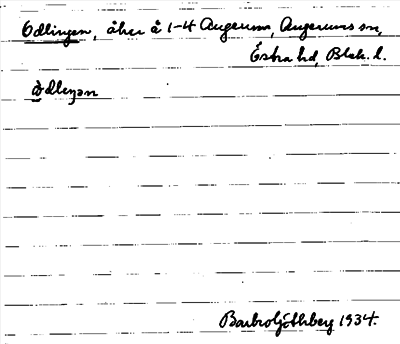 Odlingen, åker å 1-4 Augerum, Augerums sn,
Östra hd, Blek. l.
ådleŋən
Barbro Göthberg 1934.